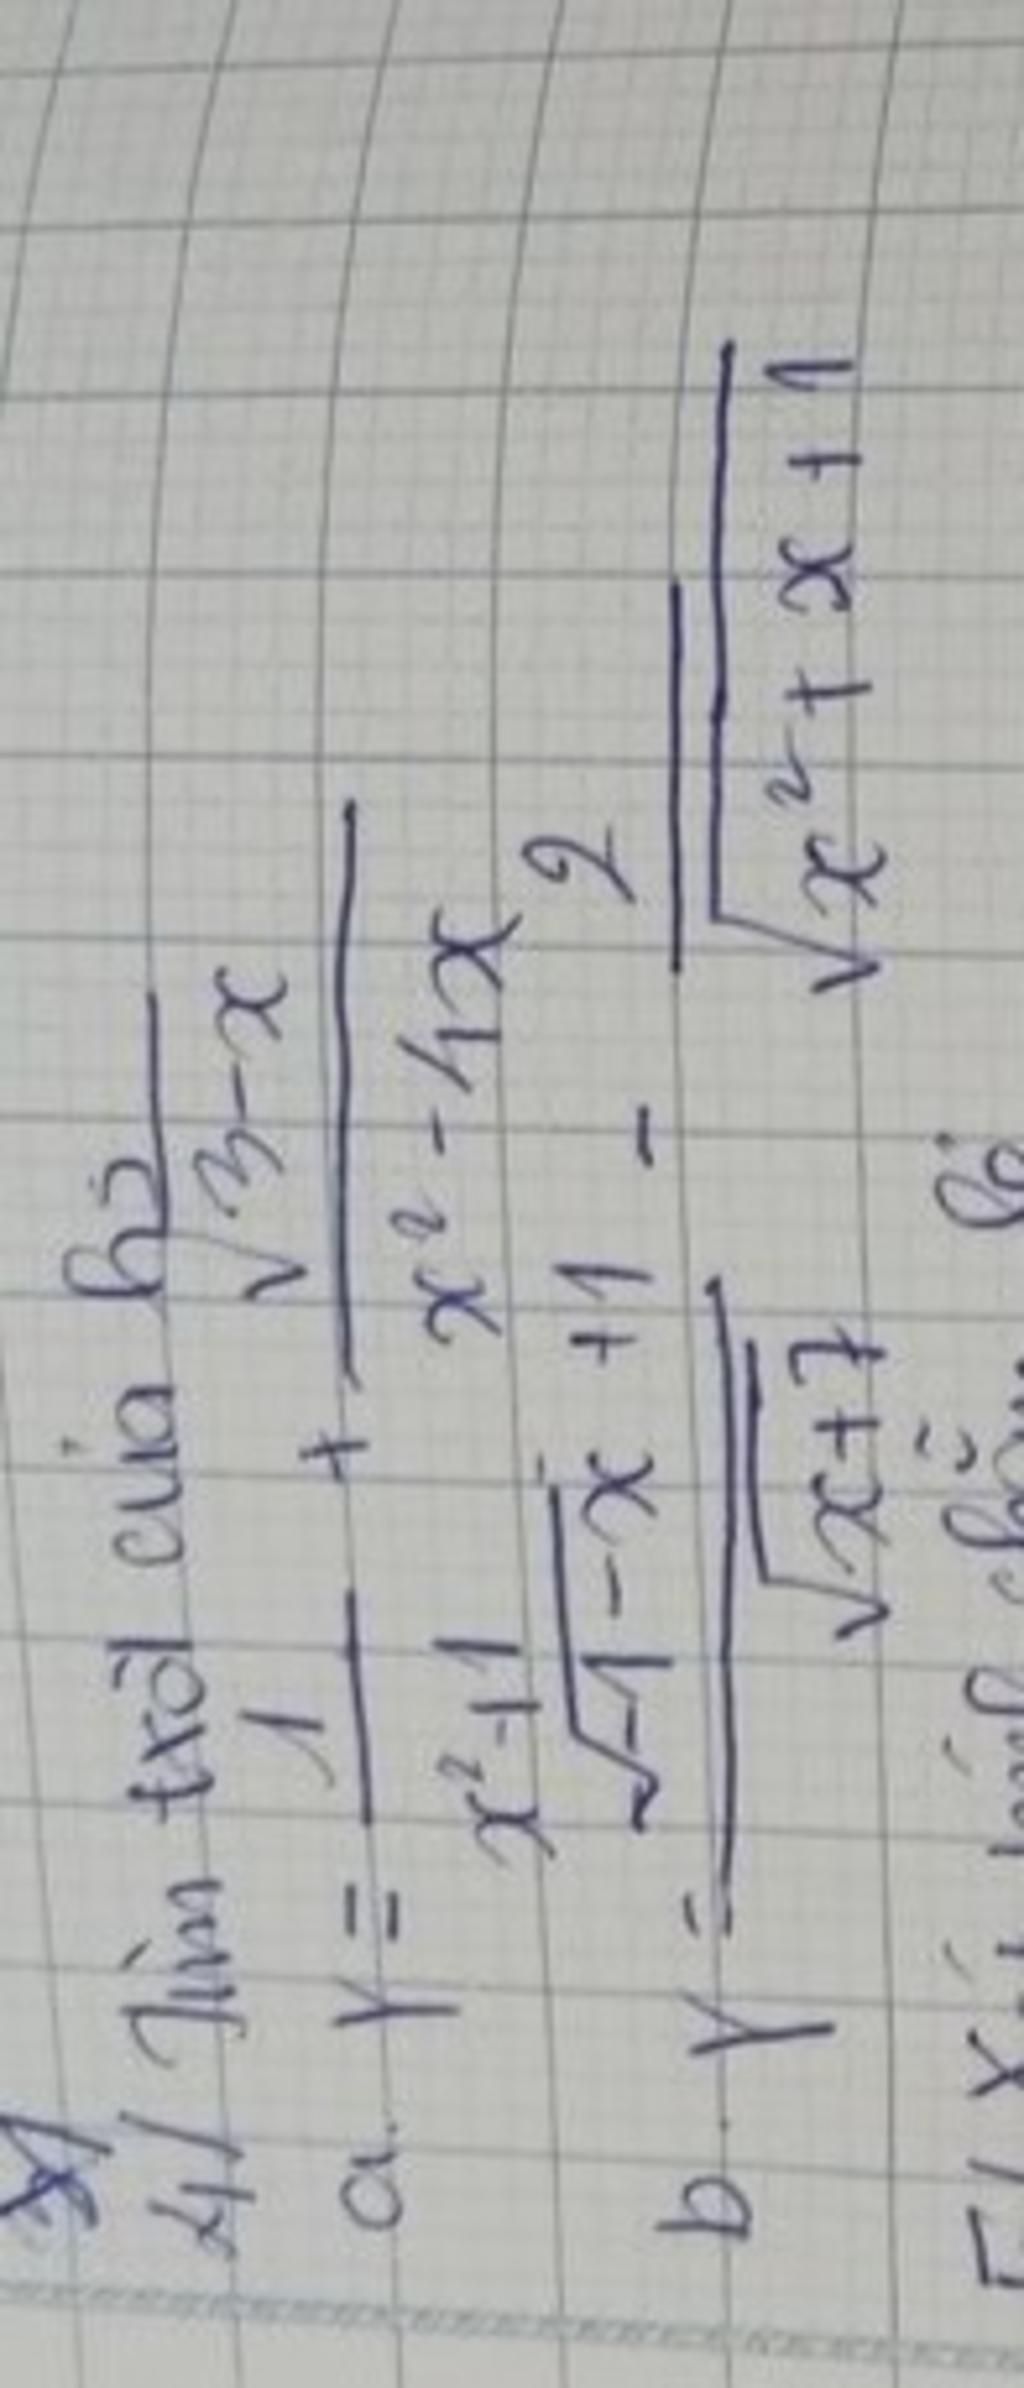 4/ Tìm txđ của hs
a. Y = 1/(x² + 1) + √(3-x)/(x² - 4x)
b. Y = (√(-1-x) + 1)/√(x+7) - 2/√(x² + x + 1)